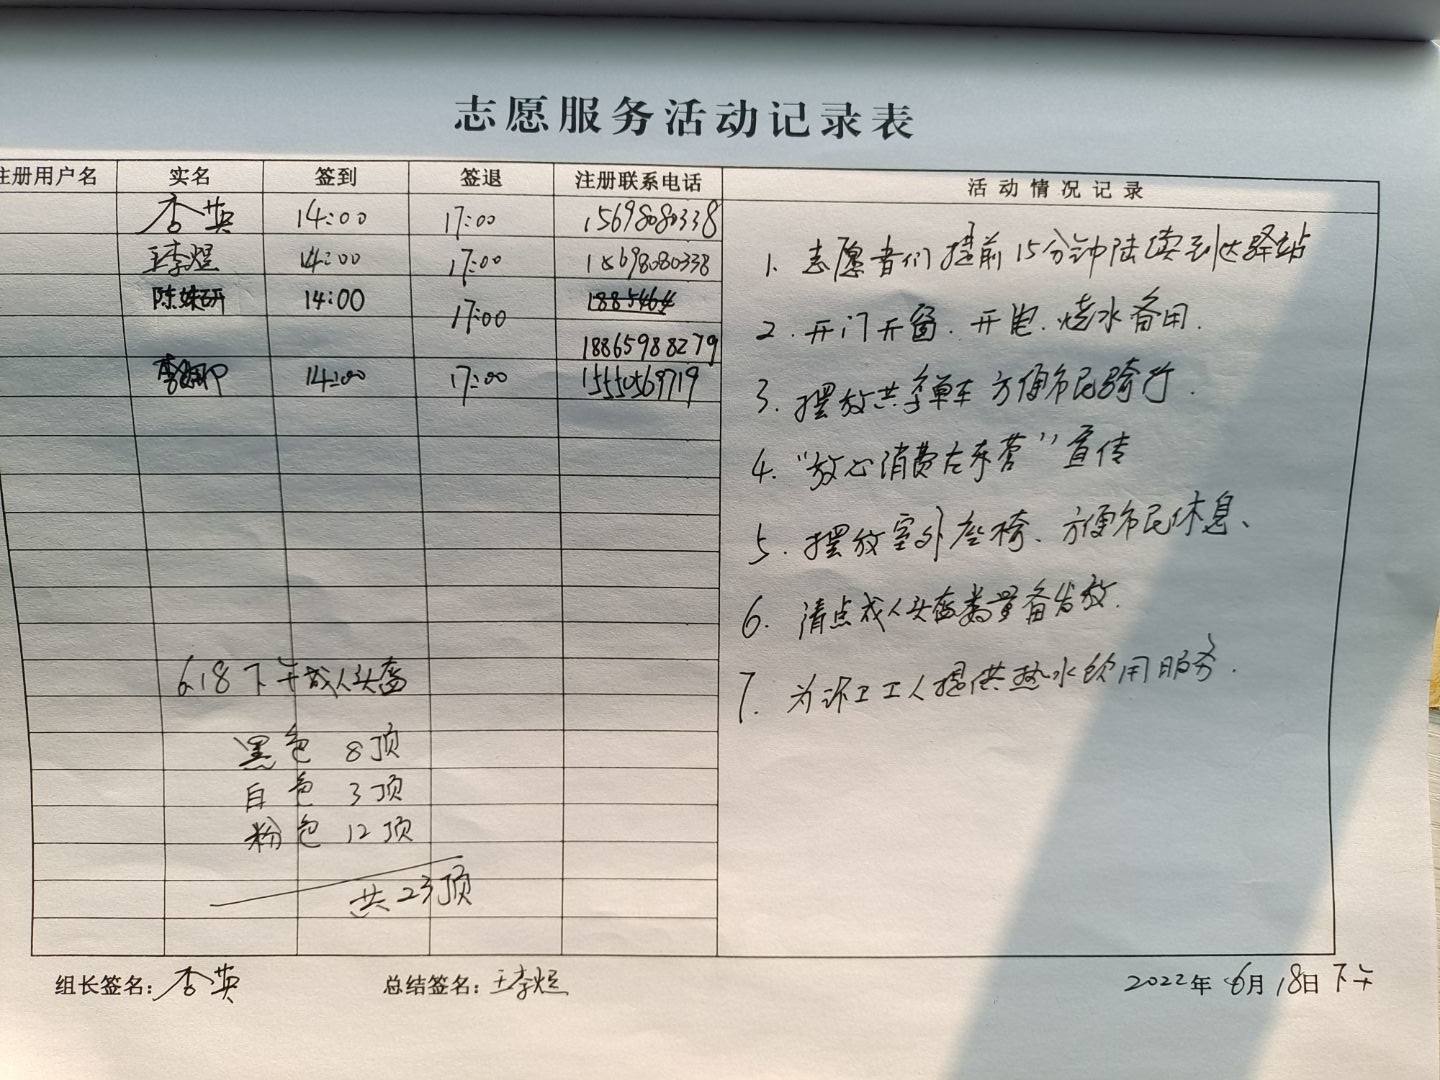 志愿服务活动记录表
注册用户名 实名 签到 签退 注册联系电话 活动情况记录
李英 14:00 17:00 15698080338
王李煜 14:00 17:00 15698080338
14:00 17:00
18865988279
14:00 17:00 15550569719
1. 志愿者们提前15分钟陆续到达驿站
2. 开门开窗. 开电. 烧水备用.
3. 摆放共享单车 方便市民骑行.
4. “放心消费在东营”宣传
5. 摆放室外座椅、方便市民休息、
6. 清点成人头盔数量备发放.
7. 为环卫工人提供热水饮用服务.
6.18下午成人头盔
黑色 8顶
白色 3顶
粉色 12顶
共23顶
组长签名: 李英 总结签名: 王李煜 2022年 6月 18日 下午